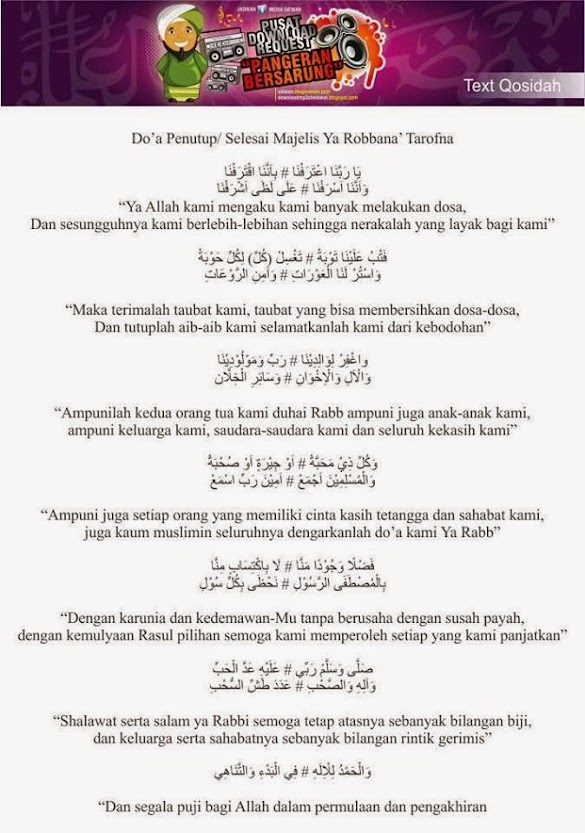 JADIKAN MEDIA DA'WAH
PUSAT
DOWNLOAD
REQUEST
"PANGERAN
BERSARUNG"
Text Qosidah
Do'a Penutup/ Selesai Majelis Ya Robbana' Tarofna
يَا رَبَّنَا اعْتَرَفْنَا # بِأَنَّنَا اقْتَرَفْنَا
وَأَنَّنَا أَسْرَفْنَا # عَلَى لَظَى أَشْرَفْنَا
“Ya Allah kami mengaku kami banyak melakukan dosa,
Dan sesungguhnya kami berlebih-lebihan sehingga nerakalah yang layak bagi kami”
فَتُبْ عَلَيْنَا تَوْبَةً # تَغْسِلُ (كُلَّ) لِكُلِّ حَوْبَةً
وَاسْتُرْ لَنَا الْعَوْرَاتِ # وَآمِنِ الرَّوْعَاتِ
“Maka terimalah taubat kami, taubat yang bisa membersihkan dosa-dosa,
Dan tutuplah aib-aib kami selamatkanlah kami dari kebodohan”
واغْفِرْ لِوَالِدِيْنَا # رَبِّ وَمَوْلُوْدِيْنَا
وَالْآلِ وَالْإِخْوَانِ # وَسَائِرِ الْخِلَّانِ
“Ampunilah kedua orang tua kami duhai Rabb ampuni juga anak-anak kami,
ampuni keluarga kami, saudara-saudara kami dan seluruh kekasih kami”
وَكُلِّ ذِيْ مَحَبَّةْ # أَوْ جِيْرَةٍ أَوْ صُحْبَةْ
وَالْمُسْلِمِيْنَ أَجْمَعْ # أَمِيْنَ رَبِّ اسْمَعْ
“Ampuni juga setiap orang yang memiliki cinta kasih tetangga dan sahabat kami,
juga kaum muslimin seluruhnya dengarkanlah do’a kami Ya Rabb”
فَضْلًا وَجُوْدًا مَنَّا # لَا بِاكْتِسَابٍ مِنَّا
بِالْمُصْطَفَى الرَّسُوْلِ # نَحْظَى بِكُلِّ سُوْلِ
“Dengan karunia dan kedemawan-Mu tanpa berusaha dengan susah payah,
dengan kemulyaan Rasul pilihan semoga kami memperoleh setiap yang kami panjatkan”
صَلَّى وَسَلَّمْ رَبِّي # عَلَيْهِ عَدَّ الْحَبِّ
وَآلِهِ وَالصَّحْبِ # عَدَدَ طَشِّ السُّحْبِ
“Shalawat serta salam ya Rabbi semoga tetap atasnya sebanyak bilangan biji,
dan keluarga serta sahabatnya sebanyak bilangan rintik gerimis”
وَالْحَمْدُ لِلْإِلَهِ # فِي الْبَدْءِ وَالتَّنَاهِي
“Dan segala puji bagi Allah dalam permulaan dan pengakhiran